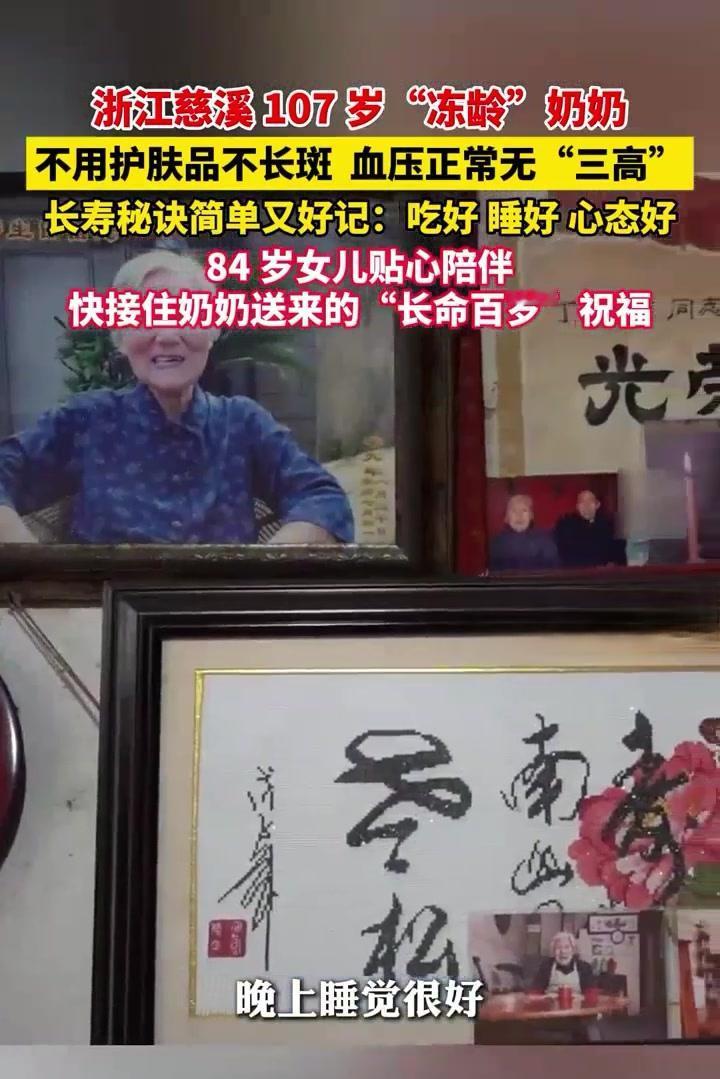 浙江慈溪 107 岁“冻龄”奶奶
不用护肤品不长斑 血压正常无“三高”
长寿秘诀简单又好记：吃好 睡好 心态好
84 岁女儿贴心陪伴
快接住奶奶送来的“长命百岁 祝福
同志
光荣
寿
南山
松
晚上睡觉很好